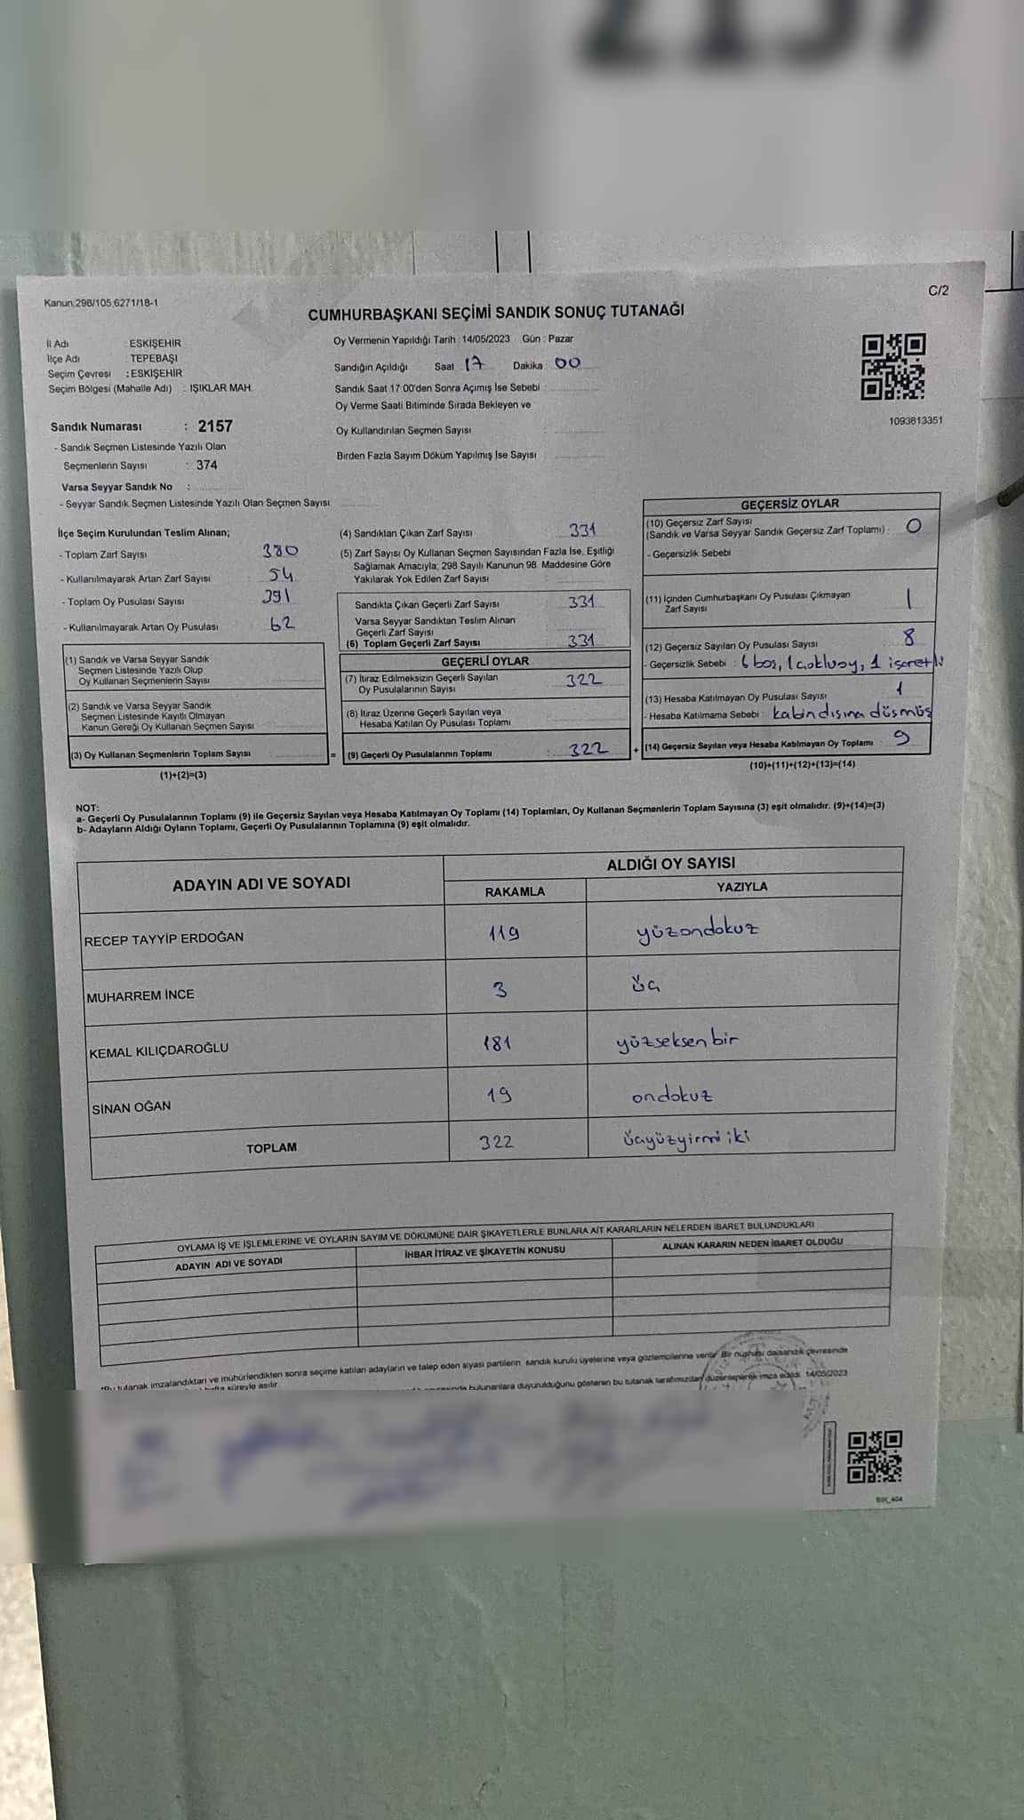 2157
Kanun 298/105,6271/18-1
C/2
CUMHURBAŞKANI SEÇİMİ SANDIK SONUÇ TUTANAĞI
İl Adı : ESKİŞEHİR
İlçe Adı TEPEBAŞI
Seçim Çevresi : ESKİŞEHİR
Seçim Bölgesi (Mahalle Adı) : IŞIKLAR MAH.
Oy Vermenin Yapıldığı Tarih : 14/05/2023 Gün : Pazar
Sandığın Açıldığı Saat 17 Dakika 00
Sandık Saat 17:00'den Sonra Açılmış İse Sebebi
Oy Verme Saati Bitiminde Sırada Bekleyen ve
Oy Kullandırılan Seçmen Sayısı
Birden Fazla Sayım Döküm Yapılmış İse Sayısı
1093813351
Sandık Numarası : 2157
- Sandık Seçmen Listesinde Yazılı Olan
Seçmenlerin Sayısı : 374
Varsa Seyyar Sandık No :
- Seyyar Sandık Seçmen Listesinde Yazılı Olan Seçmen Sayısı
İlçe Seçim Kurulundan Teslim Alınan;
- Toplam Zarf Sayısı 380
- Kullanılmayarak Artan Zarf Sayısı 54
- Toplam Oy Pusulası Sayısı 391
- Kullanılmayarak Artan Oy Pusulası 62
(1) Sandık ve Varsa Seyyar Sandık
Seçmen Listesinde Yazılı Olup
Oy Kullanan Seçmenlerin Sayısı
(2) Sandık ve Varsa Seyyar Sandık
Seçmen Listesinde Kayıtlı Olmayan
Kanun Gereği Oy Kullanan Seçmen Sayısı
(3) Oy Kullanan Seçmenlerin Toplam Sayısı =
(1)+(2)=(3)
(4) Sandıktan Çıkan Zarf Sayısı 331
(5) Zarf Sayısı Oy Kullanan Seçmen Sayısından Fazla İse, Eşitliği
Sağlamak Amacıyla; 298 Sayılı Kanunun 98. Maddesine Göre
Yakılarak Yok Edilen Zarf Sayısı
Sandıkta Çıkan Geçerli Zarf Sayısı 331
Varsa Seyyar Sandıktan Teslim Alınan
Geçerli Zarf Sayısı
(6) Toplam Geçerli Zarf Sayısı 331
GEÇERLİ OYLAR
(7) İtiraz Edilmeksizin Geçerli Sayılan
Oy Pusulalarının Sayısı 322
(8) İtiraz Üzerine Geçerli Sayılan veya
Hesaba Katılan Oy Pusulası Toplamı
(9) Geçerli Oy Pusulalarının Toplamı 322 +
GEÇERSİZ OYLAR
(10) Geçersiz Zarf Sayısı
(Sandık ve Varsa Seyyar Sandık Geçersiz Zarf Toplamı) : 0
- Geçersizlik Sebebi
(11) İçinden Cumhurbaşkanı Oy Pusulası Çıkmayan
Zarf Sayısı 1
(12) Geçersiz Sayılan Oy Pusulası Sayısı 8
- Geçersizlik Sebebi : 6 boş, 1 çokluoy, 1 işaretli
(13) Hesaba Katılmayan Oy Pusulası Sayısı 1
- Hesaba Katılmama Sebebi : kabin dışına düşmüş
(14) Geçersiz Sayılan veya Hesaba Katılmayan Oy Toplamı 9
(10)+(11)+(12)+(13)=(14)
NOT:
a- Geçerli Oy Pusulalarının Toplamı (9) ile Geçersiz Sayılan veya Hesaba Katılmayan Oy Toplamı (14) Toplamları, Oy Kullanan Seçmenlerin Toplam Sayısına (3) eşit olmalıdır. (9)+(14)=(3)
b- Adayların Aldığı Oyların Toplamı, Geçerli Oy Pusulalarının Toplamına (9) eşit olmalıdır.
ADAYIN ADI VE SOYADI
ALDIĞI OY SAYISI
RAKAMLA YAZIYLA
RECEP TAYYİP ERDOĞAN 119 yüzondokuz
MUHARREM İNCE 3 üç
KEMAL KILIÇDAROĞLU 181 yüzseksenbir
SİNAN OĞAN 19 ondokuz
TOPLAM 322 üçyüzyirmi iki
OYLAMA İŞ VE İŞLEMLERİNE VE OYLARIN SAYIM VE DÖKÜMÜNE DAİR ŞİKAYETLERLE BUNLARA AİT KARARLARIN NELERDEN İBARET BULUNDUKLARI
ADAYIN ADI VE SOYADI İHBAR İTİRAZ VE ŞİKAYETİN KONUSU ALINAN KARARIN NEDEN İBARET OLDUĞU
tutanak imzalandıktan ve mühürlendikten sonra seçime katılan adayların ve talep eden siyasi partilerin sandık kurulu üyelerine veya gözlemcilerine verilir. Bir nüshası da sandık çevresinde
süreyle asılır. bulunanlara duyurulduğunu gösteren bu tutanak tarafımızdan düzenlenerek imza edildi. 14/05/2023